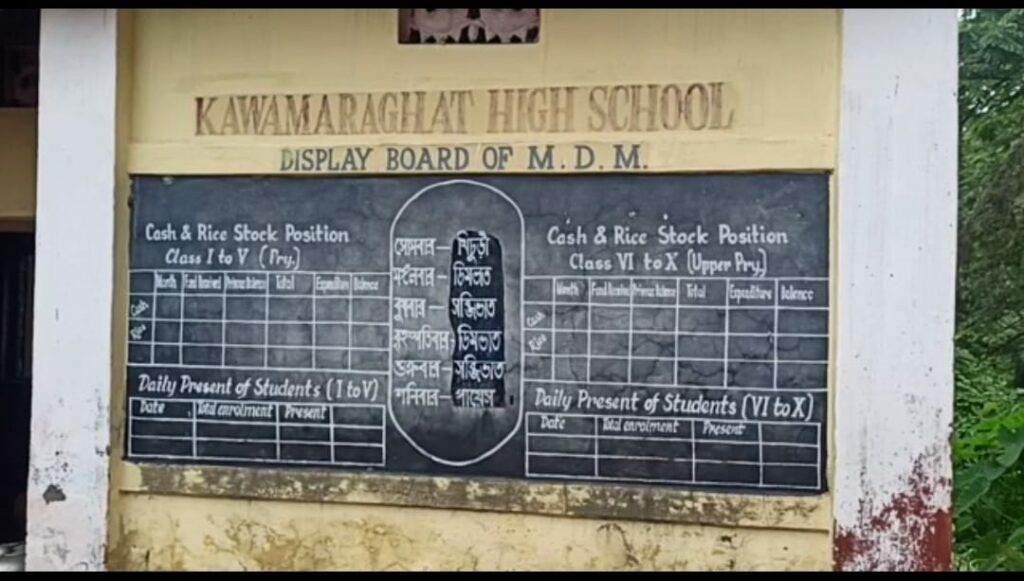 KAWAMARAGHAT HIGH SCHOOL
DISPLAY BOARD OF M.D.M.
Cash & Rice Stock Position
Class I to V (Pry.)
Month Fund Received Previous Balance Total Expenditure Balance
Cash
Rice
Daily Present of Students (I to V)
Date Total enrolment Present
সোমবার — খিচুড়ী
মঙ্গলবার — ডিমভাত
বুধবার — সব্জিভাত
বৃহস্পতিবার - ডিমভাত
শুক্রবার — সব্জিভাত
শনিবার — পায়েস
Cash & Rice Stock Position
Class VI to X (Upper Pry.)
Month Fund Received Previous Balance Total Expenditure Balance
Cash
Rice
Daily Present of Students (VI to X)
Date Total enrolment Present